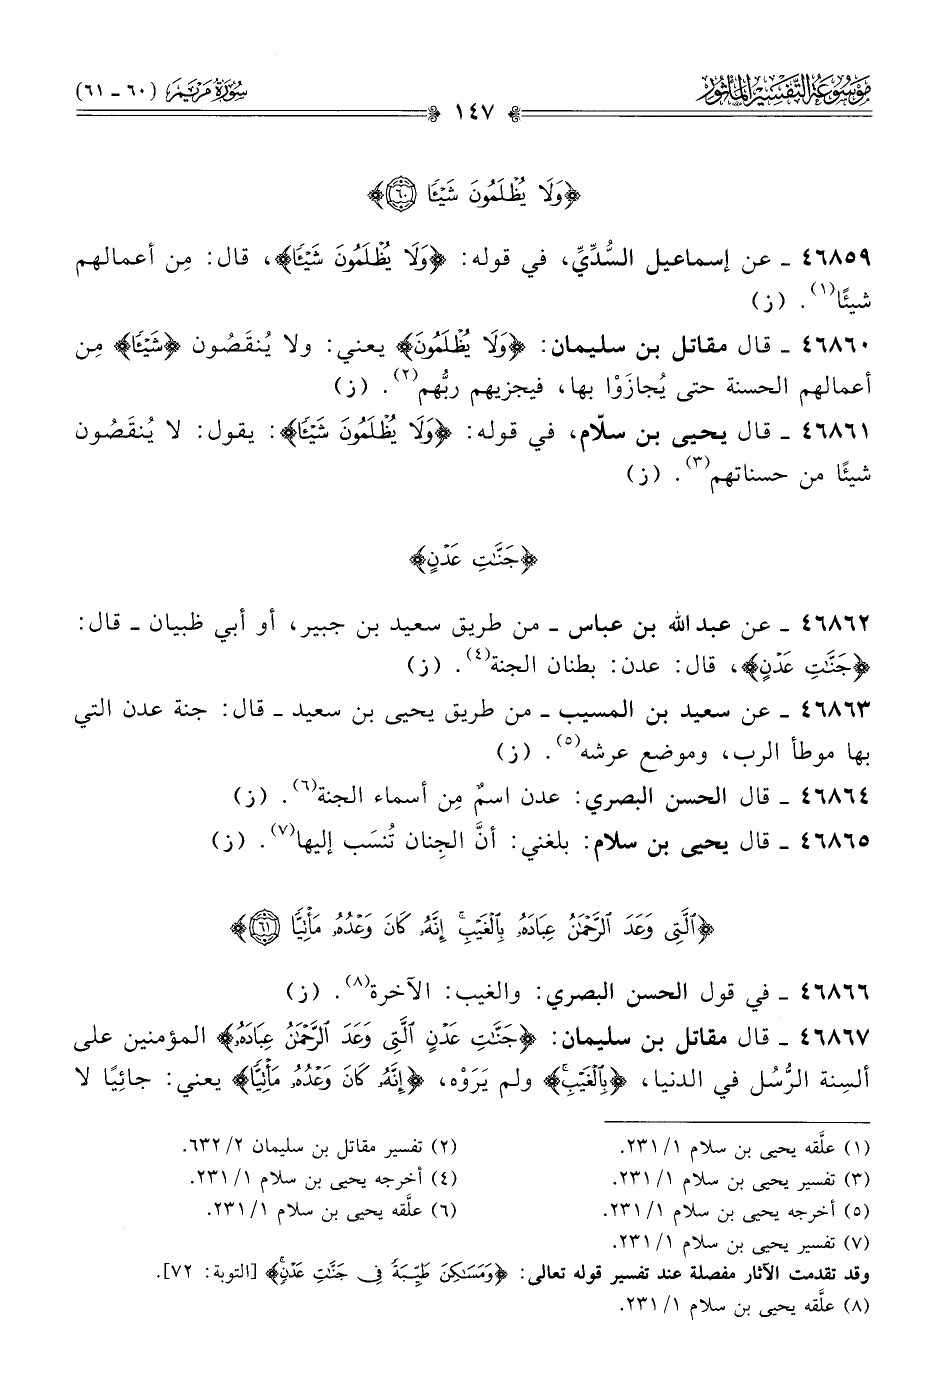 مَوْسُوعَة التَّفْسِير المَأْثُور
سُورَةُ مَرْيَمَ (٦٠ - ٦١)
١٤٧
﴿وَلَا يُظْلَمُونَ شَيْـًٔا ٦٠﴾
٤٦٨٥٩ ـ عن إسماعيل السُّدِّيِّ، في قوله: ﴿وَلَا يُظْلَمُونَ شَيْـًٔا﴾، قال: مِن أعمالهم
شيئًا(١). (ز)
٤٦٨٦٠ ـ قال مقاتل بن سليمان: ﴿وَلَا يُظْلَمُونَ﴾ يعني: ولا يُنقَصُون ﴿شَيْـًٔا﴾ مِن
أعمالهم الحسنة حتى يُجازَوْا بها، فيجزيهم ربُّهم(٢). (ز)
٤٦٨٦١ ـ قال يحيى بن سلّام، في قوله: ﴿وَلَا يُظْلَمُونَ شَيْـًٔا﴾: يقول: لا يُنقَصُون
شيئًا من حسناتهم(٣). (ز)
﴿جَنَّـٰتِ عَدْنٍ﴾
٤٦٨٦٢ ـ عن عبد الله بن عباس ـ من طريق سعيد بن جبير، أو أبي ظبيان ـ قال:
﴿جَنَّـٰتِ عَدْنٍ﴾، قال: عدن: بطنان الجنة(٤). (ز)
٤٦٨٦٣ ـ عن سعيد بن المسيب ـ من طريق يحيى بن سعيد ـ قال: جنة عدن التي
بها موطأ الرب، وموضع عرشه(٥). (ز)
٤٦٨٦٤ ـ قال الحسن البصري: عدن اسمٌ مِن أسماء الجنة(٦). (ز)
٤٦٨٦٥ ـ قال يحيى بن سلام: بلغني: أنَّ الجِنان تُنسَب إليها(٧). (ز)
﴿ٱلَّتِى وَعَدَ ٱلرَّحْمَـٰنُ عِبَادَهُۥ بِٱلْغَيْبِ ۚ إِنَّهُۥ كَانَ وَعْدُهُۥ مَأْتِيًّا ٦١﴾
٤٦٨٦٦ ـ في قول الحسن البصري: والغيب: الآخرة(٨). (ز)
٤٦٨٦٧ ـ قال مقاتل بن سليمان: ﴿جَنَّـٰتِ عَدْنٍ ٱلَّتِى وَعَدَ ٱلرَّحْمَـٰنُ عِبَادَهُۥ﴾ المؤمنين على
ألسِنة الرُّسُل في الدنيا، ﴿بِٱلْغَيْبِ ۚ﴾ ولم يَرَوْه، ﴿إِنَّهُۥ كَانَ وَعْدُهُۥ مَأْتِيًّا﴾ يعني: جائِيًا لا
(١) علَّقه يحيى بن سلام ١/ ٢٣١.
(٢) تفسير مقاتل بن سليمان ٢/ ٦٣٢.
(٣) تفسير يحيى بن سلام ١/ ٢٣١.
(٤) أخرجه يحيى بن سلام ١/ ٢٣١.
(٥) أخرجه يحيى بن سلام ١/ ٢٣١.
(٦) علَّقه يحيى بن سلام ١/ ٢٣١.
(٧) تفسير يحيى بن سلام ١/ ٢٣١.
وقد تقدمت الآثار مفصلة عند تفسير قوله تعالى: ﴿وَمَسَـٰكِنَ طَيِّبَةً فِى جَنَّـٰتِ عَدْنٍ ۚ﴾ [التوبة: ٧٢].
(٨) علَّقه يحيى بن سلام ١/ ٢٣١.